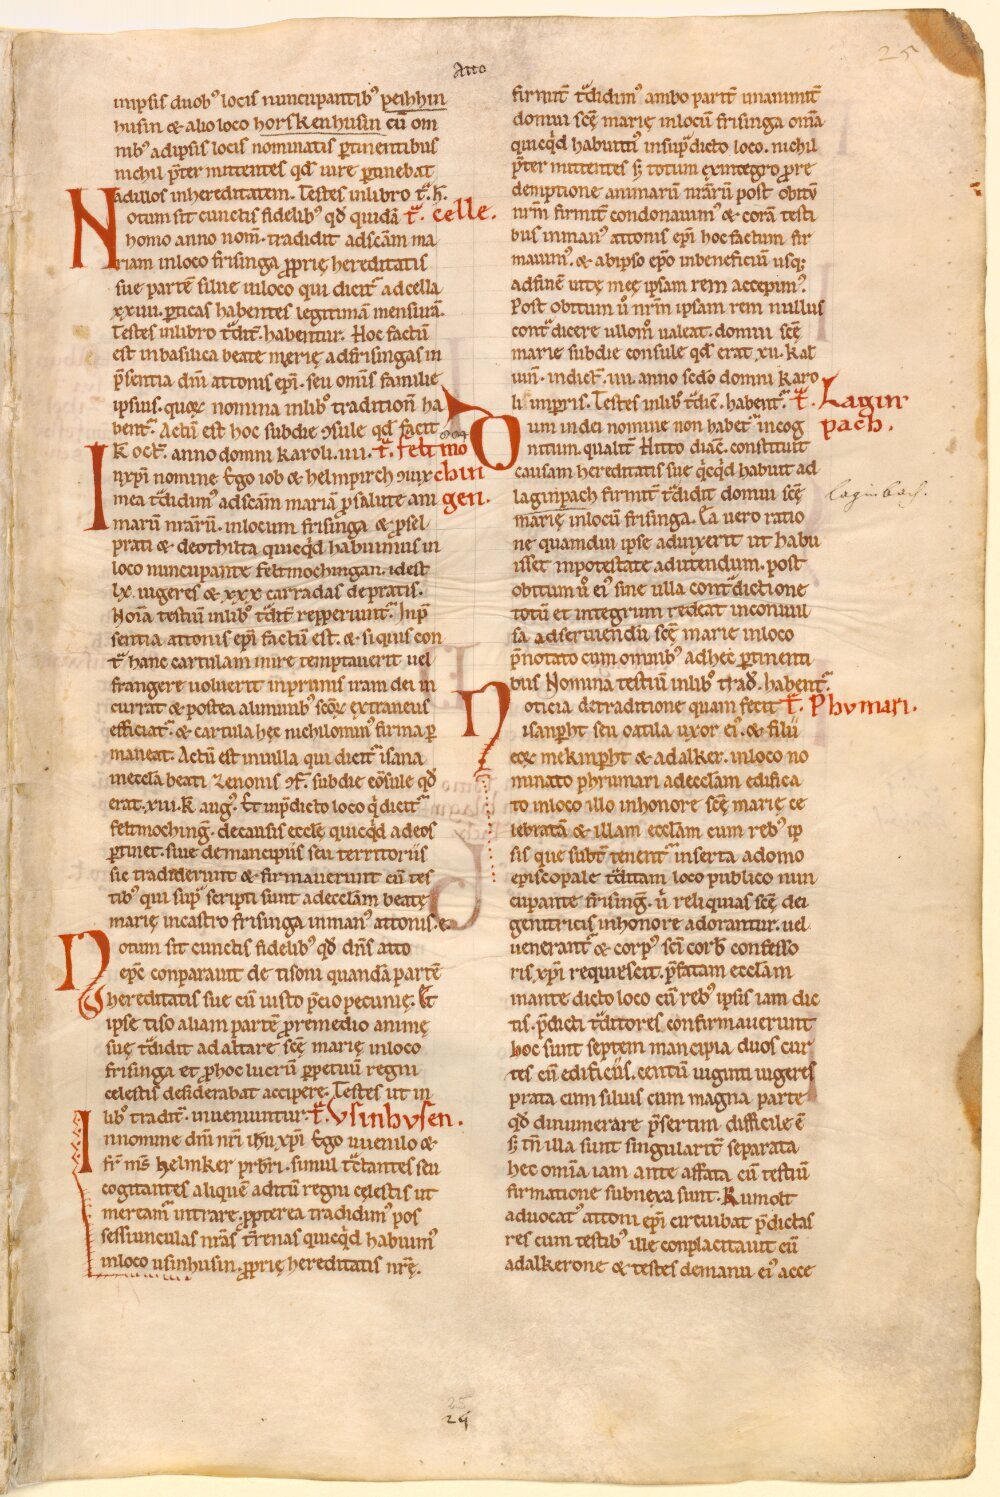 25
Atto
inipsis duobꝰ locis nuncupantibꝰ peihhin
husin & alio loco horskenhusin cū om
nibꝰ adipsis locis nominatis ꝑtinentibus
nichil p̄ter mittentes qd̄ iure ꝑtinebat
adillos inhereditatem. Testes inlibro tͣ. h̄.
Notum sit cunctis fidelibꝰ qd̄ quidā tͣ. celle.
homo anno nom̄. tradidit adscām ma
riam inloco frisinga ꝓprię hereditatis
sue partē silue inloco qui dicit̄ adcella
xxiiii. ꝑticas habentes legitimā mensurā.
Testes inlibro tͣdit̄. habentur. Hoc factū
est inbasilica beate merię adfrisingas in
p̄sentia dn̄i attonis ep̄i. seu om̄is familie
ipsius. quoꝝ nomina inlibꝰ tradition̄ ha
bent̄. Actū est hoc subdie ꝯsule qd̄ facit
K oct̄. anno domni karoli. iiii. tͣ. felt mo
Inxp̄i nomine Ego iob & helmpirch ꝯiux chin
mea tͣdidimꝰ adscām mariā ꝓsalute ani gen.
marū nr̄arū. inlocum frisinga & ꝓsel
prati & deothilta quicqd̄ habuimus in
loco nuncupante feltmochingan. idest
lx. iugeres & xxx carradas depratis.
Hoīa testiū inlibꝰ tͣdit̄ repperiunt̄. Inp̄
sentia attonis ep̄i factū est. & siquis con
tͣ hanc cartulam inire temptauerit uel
frangere uoluerit inprimis iram dei in
currat & postea aluminibꝰ scōꝝ extraneus
efficiat̄. & cartula hęc nichilominꝰ firma ꝑ
maneat. Actū est inuilla qui dicit̄ isana
inecclā beati zenonis ꝯf̄. subdie cōsule qd̄
erat. xiii. K augꝰ. Et inp̄dicto loco q̇ dicit̄
feltmochinḡ. decausis ecclē quicqd̄ adeos
ꝑtinet. siue demancipiis seu territoriis
sic tradiderunt & firmauerunt cū tes
tibꝰ qui sup̄ scripti sunt adecclām beatę
marię incastro frisinga inmanꝰ attonis. e.
Notum sit cunctis fidelibꝰ qd̄ dn̄s atto
epc̄ conparauit de tisoni quandā partē
hereditatis sue cū iusto p̄cio pecunię. Et
ipse tiso aliam partē ꝓremedio animę
suę tͣdidit adaltare scē marię inloco
frisinga et ꝓhoc lucrū ꝑpetuū regni
celestis desiderabat accipere. Testes ut in
libꝰ tradit̄. inueniuntur. tͣ. Vsinhvsen.
Innomine dn̄i nr̄i ihū xp̄i Ego uuenilo &
fr̄ ms̄ helmker prb̄ri. simul tͣctantes seu
cogitantes aliquē aditū regni celestis ut
meream̄ intrare. ꝓpterea tradidimꝰ pos
sessiunculas nr̄as tr̄renas quicqd̄ habuimꝰ
inloco usinhusin. ꝓprię hereditatis nr̄ę.
firmit̄ tͣdidimꝰ ambo parit̄ unanimit̄
domui scē marię inlocū frisinga om̄ia
quicqd̄ habuimꝰ insup̄dicto loco. nichil
p̄ter mittentes sꝫ totum exintegro ꝓre
demptione animarū nr̄arū post obitū
nr̄m firmit̄ condonauimꝰ & corā testi
bus inmanꝰ attonis ep̄i hoc factum fir
mauimꝰ. & abipso ep̄o inbeneficiū usqꝫ
adfinē uitę meę ipsam rem accepimꝰ.
Post obitum ů nr̄m ipsam rem nullus
contͣdicere ullom̊ ualeat. domui scē
marie subdie consule qd̄ erat xii. kal̄
iun̄. indict̄. iiii. anno scd̄o domni karo
li impr̄is. Testes inlibꝰ tͣdic̄. habent̄. tͣ. Lagin
Dum indei nomine non habet̄ incog pach.
nitum. qualit̄ Hitto diac̄. constituit
causam hereditatis sue q̇cqd̄ habuit ad
laginpach firmit̄ tͣdidit domui scē
marię inlocū frisinga. Ea uero ratio
laginbach.
ne quamdiu ipse aduixerit ut habu
isset inpotestate adutendum. post
obitum ů eiꝰ sine ulla contͣdictione
totū et integrum redeat inconuul
sa adseruiendū scē marie inloco
p̄notato cum omnibꝰ adhec ꝑtinenti
bus Nomina testiū inlibꝰ trad̄. habent̄.
Noticia detraditione quam fecit tͣ. Phvmari.
isanpht seu oatila uxor eiꝰ. & filii
eoꝝ mekinpht & adalker. inloco no
minato phrumari adecclām edifica
to inloco illo inhonore scē marię ce
lebratā & illam ecclām cum rebꝰ ip
sis que subt̄ tenent̄ inserta adomo
episcopale tͣditam loco publico nun
cupante frisinḡ. ů reliquias scē dei
genitricis inhonore adorantur. uel
uenerant̄ & corpꝰ scī corb̄ confesso
ris xp̄i requiescit. p̄fatam ecclām
inante dicto loco cū rebꝰ ipsis iam dic
tis. p̄dicti tͣditores confirmauerunt
hoc sunt septem mancipia duos cur
tes cū edificiis. centū uiginti iugeres
prata cum siluis cum magna parte
qd̄ dinumerare p̄sertim difficile ē
sꝫ tn̄ illa sunt singularit̄ separata
hec om̄ia iam ante affata cū testiū
firmatione subnexa sunt. Rumolt
aduocatꝰ attoni ep̄i circuibat p̄dictas
res cum testibꝰ ille conplacitauit cū
adalkerone & testes demanu eiꝰ acce
25
25